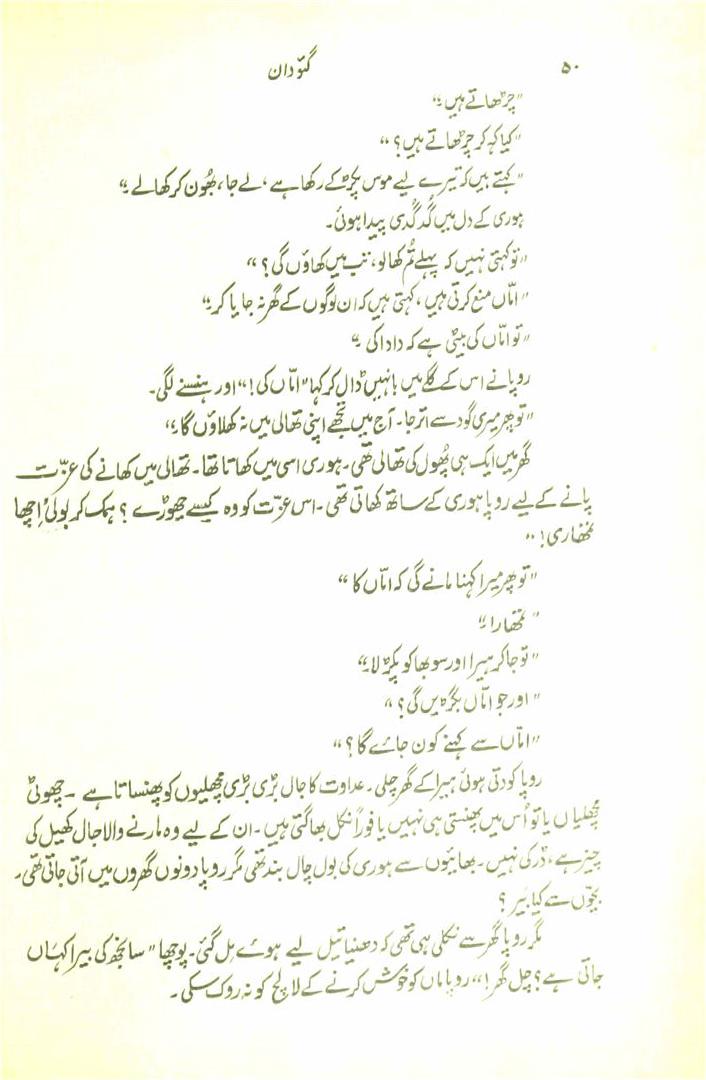 ۵۰ گئودان
"چڑھاتے ہیں۔"
"کیا کہہ کر چڑھاتے ہیں؟"
"کہتے ہیں کہ تیرے لیے موس پکڑ کے رکھا ہے، لے جا، بھُون کر کھا لے۔"
ہوری کے دل میں گُدگُدی پیدا ہوئی۔
"تو کہتی نہیں کہ پہلے تُم کھالو، تب میں کھاؤں گی؟"
"امّاں منع کرتی ہیں، کہتی ہیں کہ ان لوگوں کے گھر نہ جایا کر۔"
"تو امّاں کی بیٹی ہے کہ دادا کی۔"
روپا نے اس کے گلے میں بانہیں ڈال کر کہا "امّاں کی!" اور ہنسنے لگی۔
"تو پھر میری گود سے اتر جا۔ آج میں تجھے اپنی تھالی میں نہ کھلاؤں گا۔"
گھر میں ایک ہی پھُول کی تھالی تھی۔ ہوری اسی میں کھاتا تھا۔ تھالی میں کھانے کی عزّت
پانے کے لیے روپا ہوری کے ساتھ کھاتی تھی۔ اس عزّت کو وہ کیسے چھوڑے؟ ہمک کر بولی "اچھا
تمھاری!"
"تو پھر میرا کہنا مانے گی کہ امّاں کا"
"تمھارا۔"
"تو جا کر ہیرا اور سوبھا کو پکڑ لا۔"
"اور جو امّاں بگڑیں گی؟"
"امّاں سے کہنے کون جائے گا؟"
روپا کودتی ہوئی ہیرا کے گھر چلی۔ عداوت کا جال بڑی بڑی مچھلیوں کو پھنساتا ہے ۔ چھوٹی
مچھلیاں یا تو اُس میں پھنستی ہی نہیں یا فوراً نکل بھاگتی ہیں۔ ان کے لیے وہ مارنے والا جال کھیل کی
چیز ہے، ڈر کی نہیں۔ بھائیوں سے ہوری کی بول چال بند تھی مگر روپا دونوں گھروں میں آتی جاتی تھی۔
بچّوں سے کیا بَیر؟
مگر روپا گھر سے نکلی ہی تھی کہ دھنیا تیل لیے ہوئے مل گئی۔ پوچھا "سانجھ کی بیرا کہاں
جاتی ہے؟ چل گھر!" روپا ماں کو خوش کرنے کے لالچ کو نہ روک سکی۔